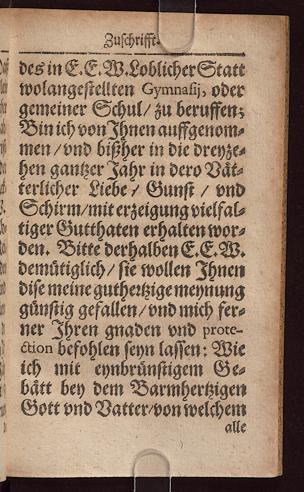 Zuschrifft.
des in E. E. W. Loblicher Statt
wolangestellten Gymnasij, oder
gemeiner Schul / zu beruffen;
Bin ich von Ihnen auffgenom-
men / vnd bißher in die dreyze-
hen gantzer Jahr in dero Vät-
terlicher Liebe / Gunst / vnd
Schirm / mit erzeigung vielfal-
tiger Gutthaten erhalten wor-
den. Bitte derhalben E. E. W.
demütiglich / sie wollen Ihnen
dise meine guthertzige meynung
günstig gefallen / vnd mich fer-
ner Ihren gnaden vnd prote-
ction befohlen seyn lassen: Wie
ich mit eynbrünstigem Ge-
bätt bey dem Barmhertzigen
Gott vnd Vatter / von welchem
alle